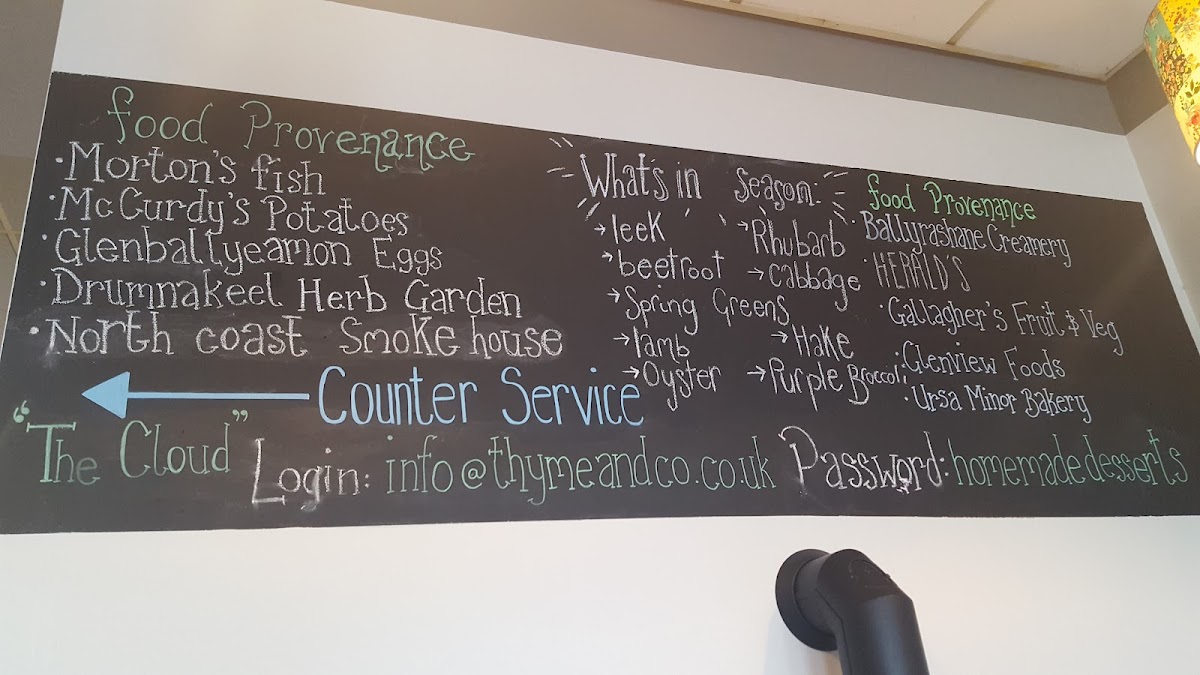 food Provenance
·Morton's fish
·McCurdy's Potatoes
·Glenballyeamon Eggs
·Drumnakeel Herb Garden
·North coast Smoke house
What's in Season:
→leek
→beetroot
→Spring Greens
→lamb
→Oyster
→Rhubarb
→Cabbage
→Hake
→Purple Broccoli
food Provenance
·Ballyrashane Creamery
·HERALD'S
·Gallagher's Fruit & Veg
·Glenview Foods
·Ursa Minor Bakery
← Counter Service
"The Cloud" Login: info@thymeandco.co.uk Password: homemadedesserts